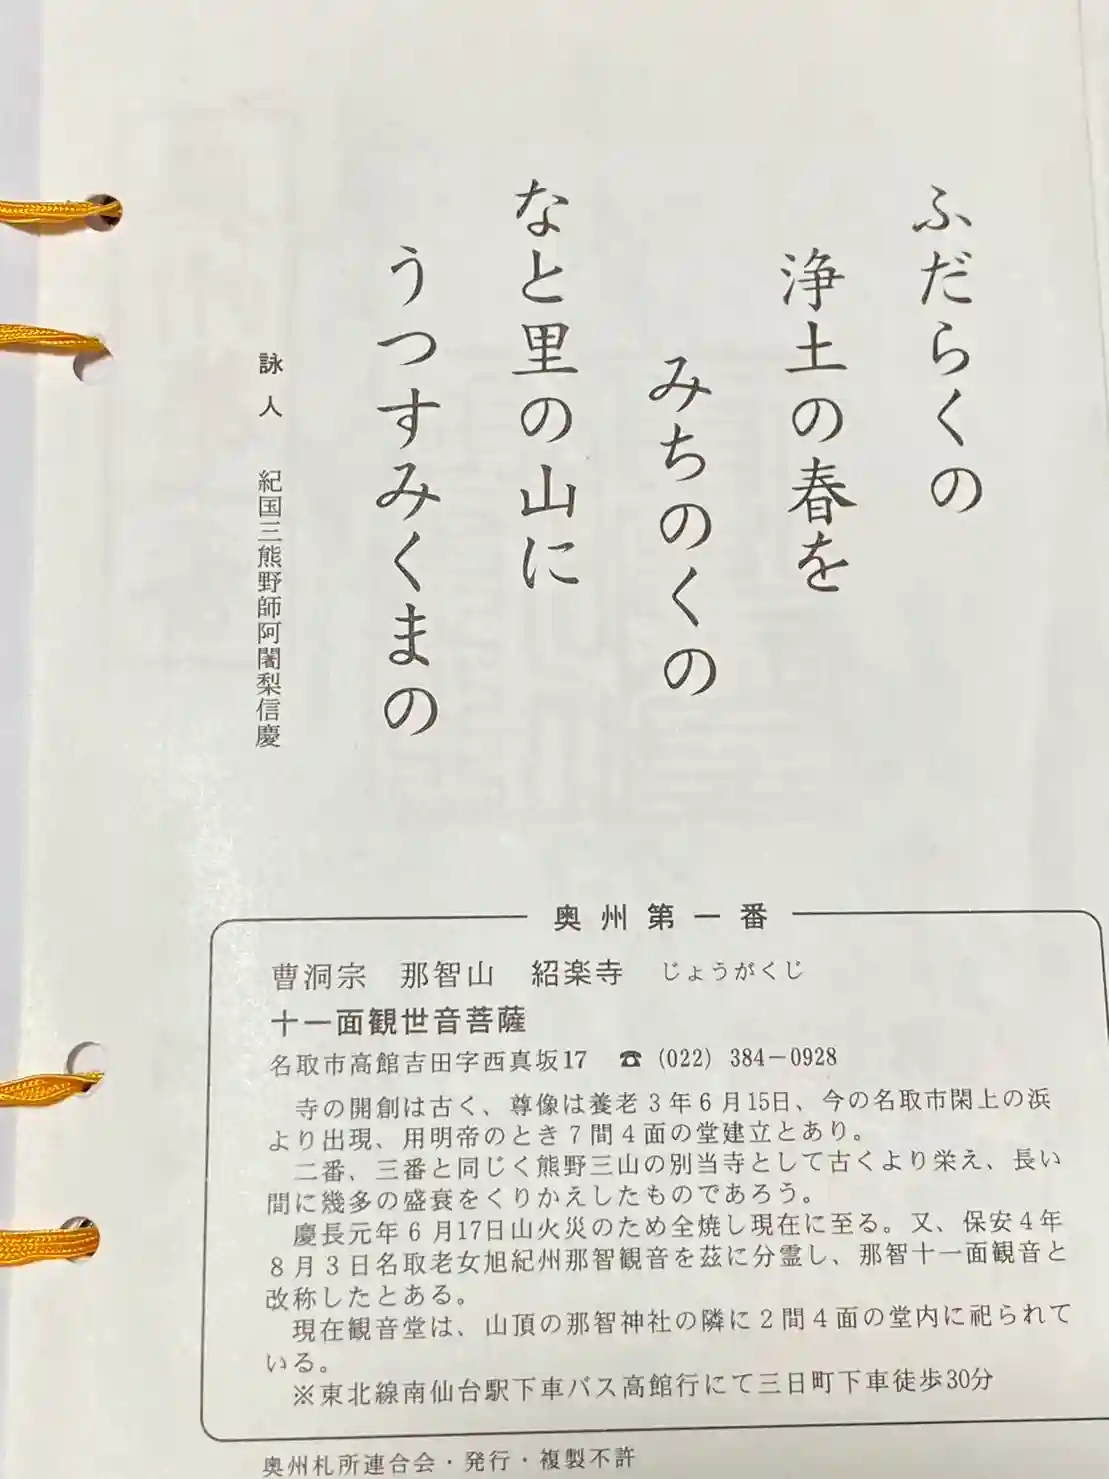 ふだらくの
浄土の春を
みちのくの
なと里の山に
うつすみくまの
詠人　紀国三熊野師阿闍梨信慶
奥州第一番
曹洞宗　那智山　紹楽寺　じょうがくじ
十一面観世音菩薩
名取市高館吉田字西真坂17　☎ (022) 384－0928
寺の開創は古く、尊像は養老３年６月15日、今の名取市閖上の浜
より出現、用明帝のとき７間４面の堂建立とあり。
二番、三番と同じく熊野三山の別当寺として古くより栄え、長い
間に幾多の盛衰をくりかえしたものであろう。
慶長元年６月17日山火災のため全焼し現在に至る。又、保安４年
８月３日名取老女旭紀州那智観音を茲に分霊し、那智十一面観音と
改称したとある。
現在観音堂は、山頂の那智神社の隣に２間４面の堂内に祀られて
いる。
※東北線南仙台駅下車バス高館行にて三日町下車徒歩30分
奥州札所連合会・発行・複製不許